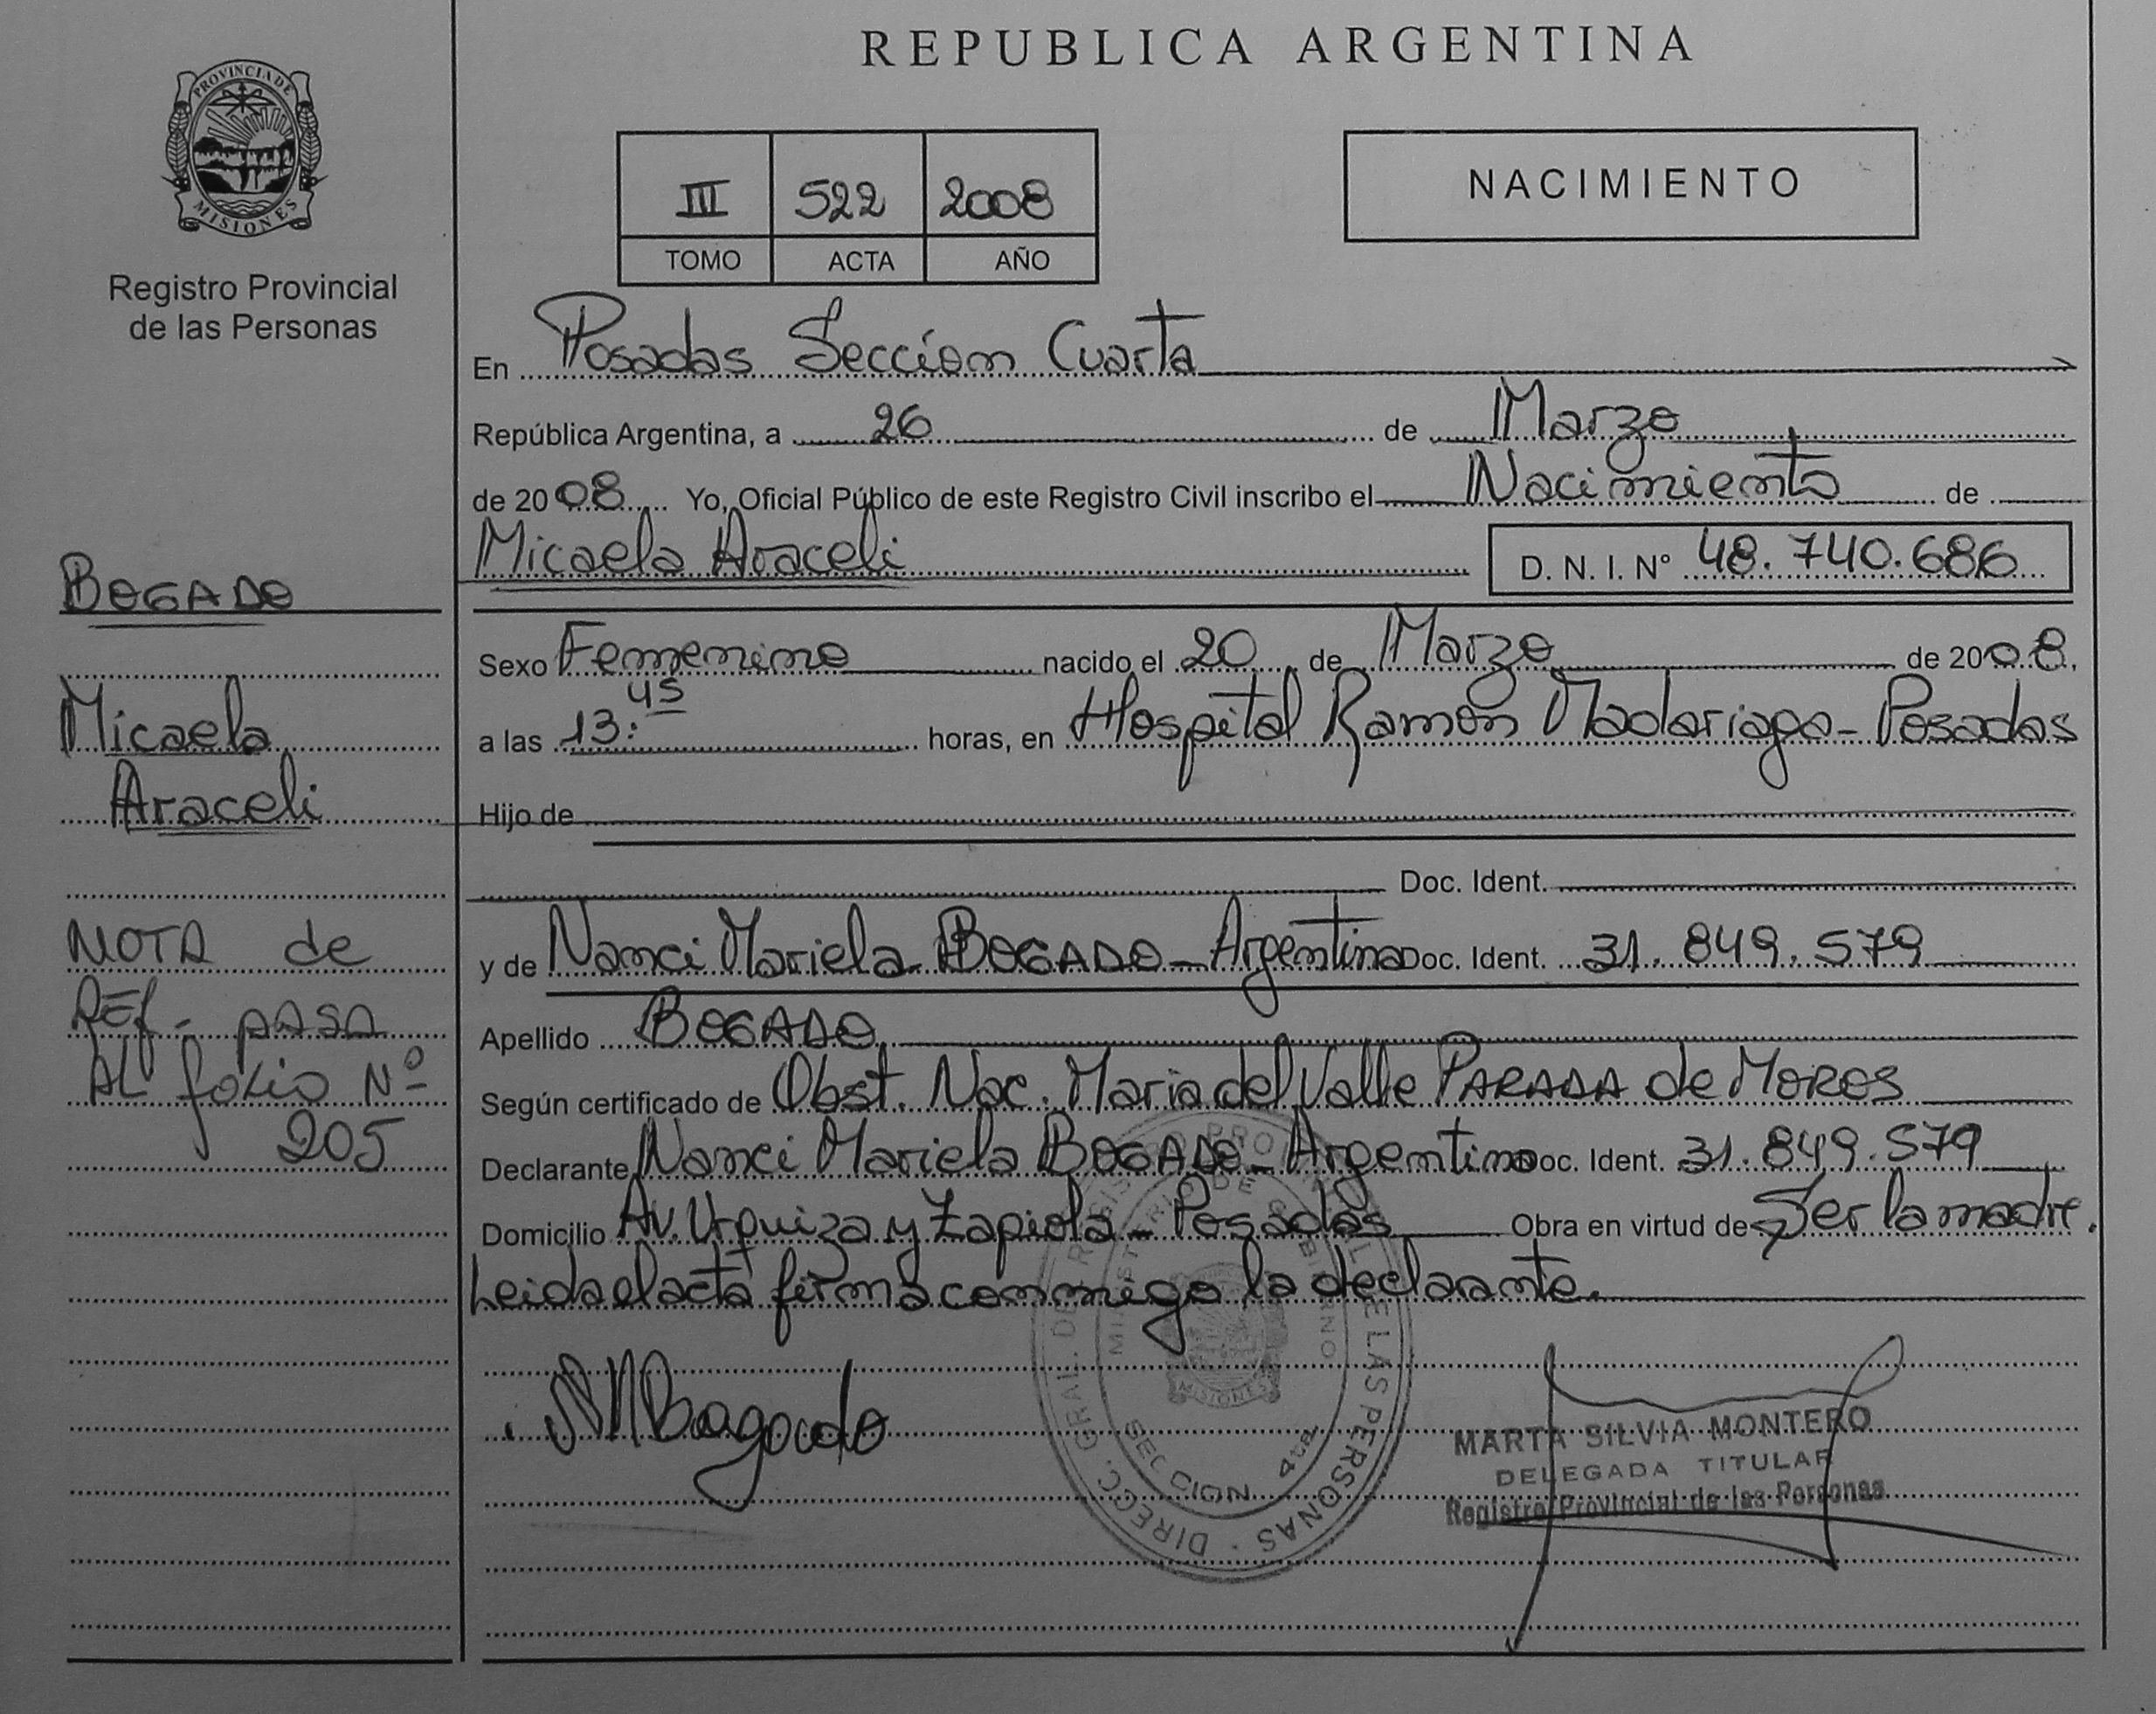 REPUBLICA ARGENTINA
PROVINCIA DE
MISIONES
Registro Provincial
de las Personas
III 522 2008
TOMO ACTA AÑO
NACIMIENTO
En Posadas Sección Cuarta
República Argentina, a 26 de Marzo
de 2008 Yo, Oficial Público de este Registro Civil inscribo el Nacimiento de
Micaela Araceli D. N. I. Nº 48.740.686
Sexo Femenino nacido el 20 de Marzo de 2008,
a las 13:45 horas, en Hospital Ramón Madariaga - Posadas
Hijo de
Doc. Ident.
y de Nanci Mariela BOGADO - Argentina Doc. Ident. 31.849.579
Apellido BOGADO
Según certificado de Obst. Nac. Maria del Valle PARADA de MOROS
Declarante Nanci Mariela BOGADO - Argentina Doc. Ident. 31.849.579
Domicilio Av. Urquiza y Zapiola - Posadas Obra en virtud de Ser la madre.
Leida el acta firma conmigo la declarante.
BOGADO
Micaela
Araceli
NOTA de
REf - pASA
AL foLio Nº
205
NMBogado
DIRECC. GRAL. DE REGISTRO PROVINCIAL DE LAS PERSONAS
MINISTERIO DE GOBIERNO
MISIONES
SECCION 4ta
MARTA SILVIA MONTERO
DELEGADA TITULAR
Registro Provincial de las Personas